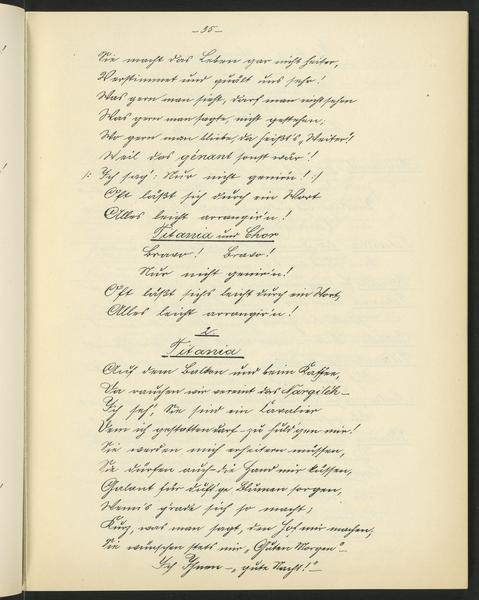 - 35 -
Sie macht das Leben gar nicht heiter,
Verstimmet und quält uns sehr!
Was gern man sieht, darf man nicht sehn
Was gern man sagte, nicht gestehen;
Wo gern man bliebe, da heißt's „Weiter"!
Weil das génant sonst wär'!
/: Ich sag': Nur nicht genir'n! :/
Oft läßt sich durch ein Wort
Alles leicht arrangir'n!
Titania und Chor
Bravo! Bravo!
Nur nicht genir'n!
Oft läßt sichs leicht durch ein Wort,
Alles leicht arrangir'n!
2.
Titania
Auf dem Balkon und beim Kaffee,
Da rauchen wir vereint das Nargileh -
Ich seh', Sie sind ein Cavalier
Dem ich gestatten darf - zu huld'gen mir!
Sie werden mich erheitern müssen,
Sie dürfen auch - die Hand mir küssen,
Galant für duft'ge Blumen sorgen,
Wenn's grade sich so macht;
Kurz, was man sagt, den Hof mir machen,
Sie wünschen stets mir „Guten Morgen" -
Ich Ihnen - „gute Nacht!" -